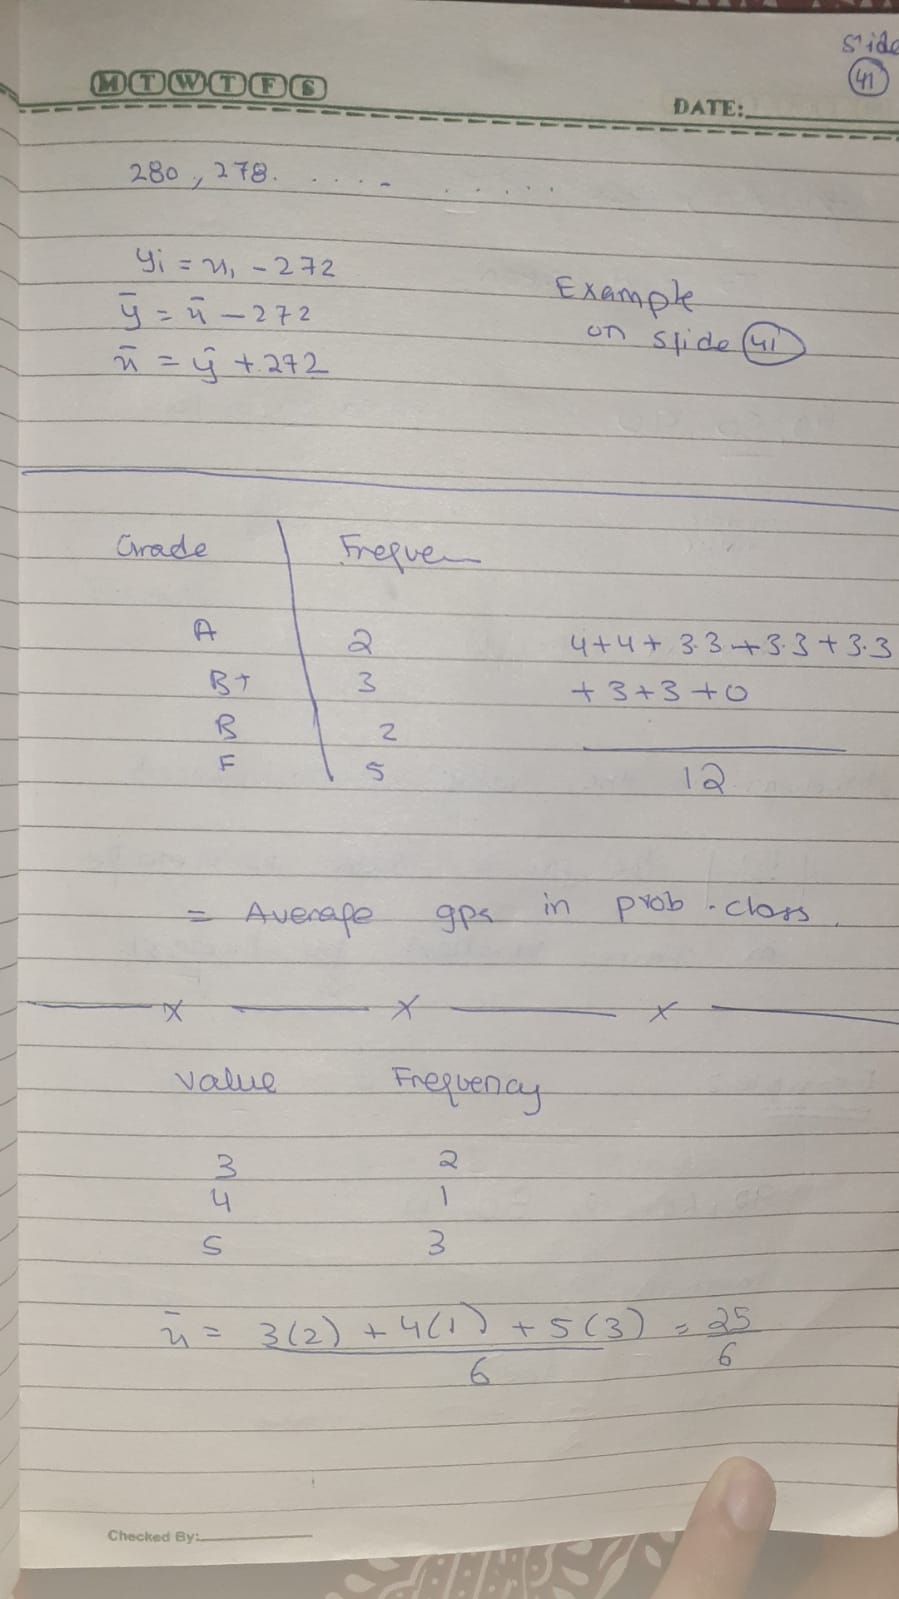 Slide
41
M T W T F S
DATE:
280, 278. . . . - . . . . .
yi = xi - 272
ȳ = x̄ - 272
x̄ = ȳ + 272
Example
on slide 41
Grade Frequen
A 2
B+ 3
B 2
F 5
4+4+ 3.3+3.3+3.3
+3+3+0
12
= Average gpa in prob. class.
x x x
Value Frequency
3 2
4 1
5 3
x̄ = 3(2) + 4(1) + 5(3) = 25
6 6
Checked By: